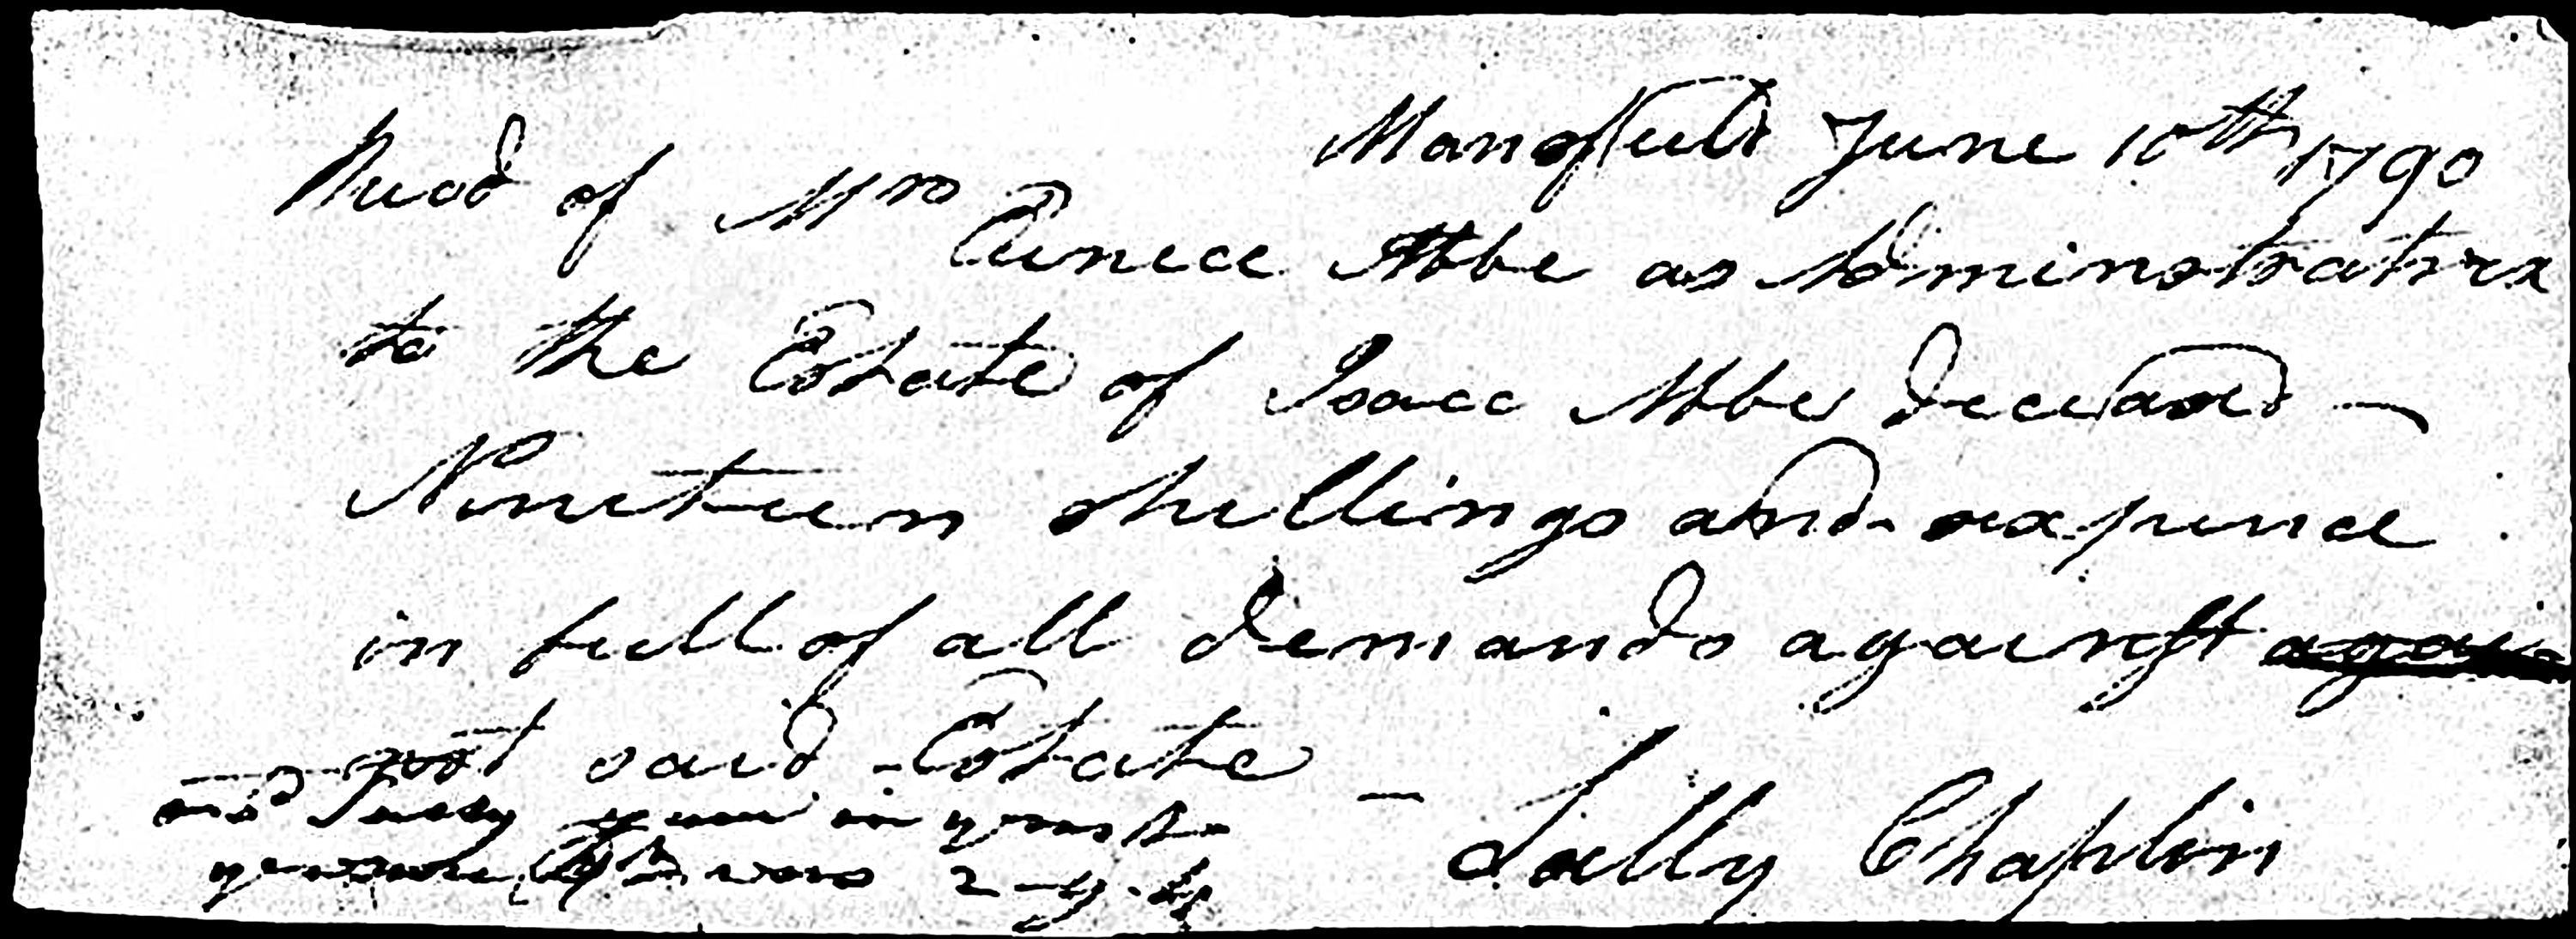 Mansfield June 10th 1790
Recd of Mrs Eunice Abbe as Adminstratrix
to the Estate of Isaac Abbe deceased —
Nineteen shillings and sixpence
in full of all demands against
said Estate
— Sally Chaplin
and
was 2-9-